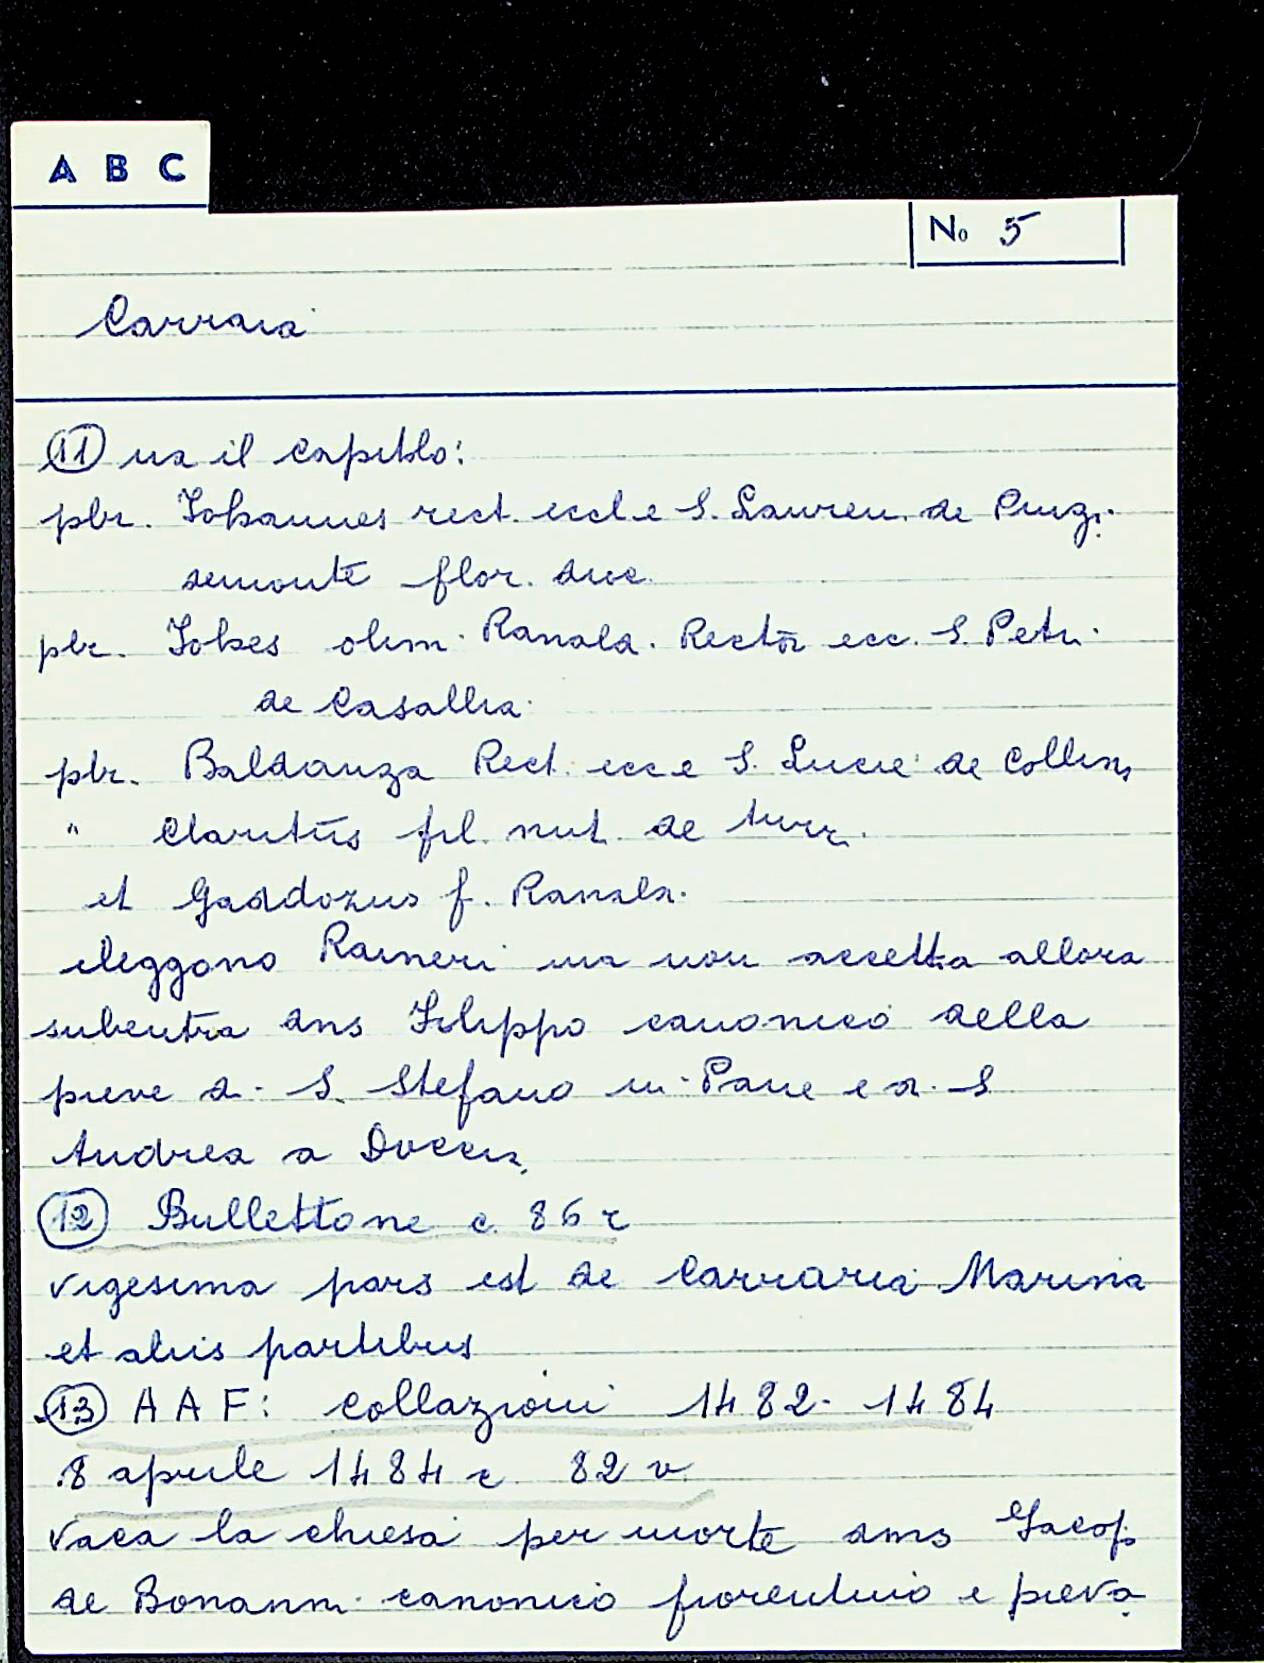 A B C
No 5
Carraia
11 ma il capitolo:
pbr. Johannes rect. eccl.e S. Lauren. de Pingi
demonte flor. doc.
pbr. Johes olim Ranald. Rector ecc. S. Petri
de Casallia
pbr. Baldanza Rect. ecc.e S. Lucie de Collina
" Claritus fil. nut. de turr.
et Gaddozus f. Ranald.
eleggono Raineri ma non accetta allora
subentra dns Filippo canonico della
pieve di S. Stefano in Pane e di S
Andrea a Doccia
12 Bullettone c. 86 r
vigesima pars est de Carraria Marina
et aliis partibus
13 A A F: Collazioni 1482-1484
8 aprile 1484 c. 82 v
vaca la chiesa per morte dms Jacop.
de Bonanni canonico fiorentino e pieva